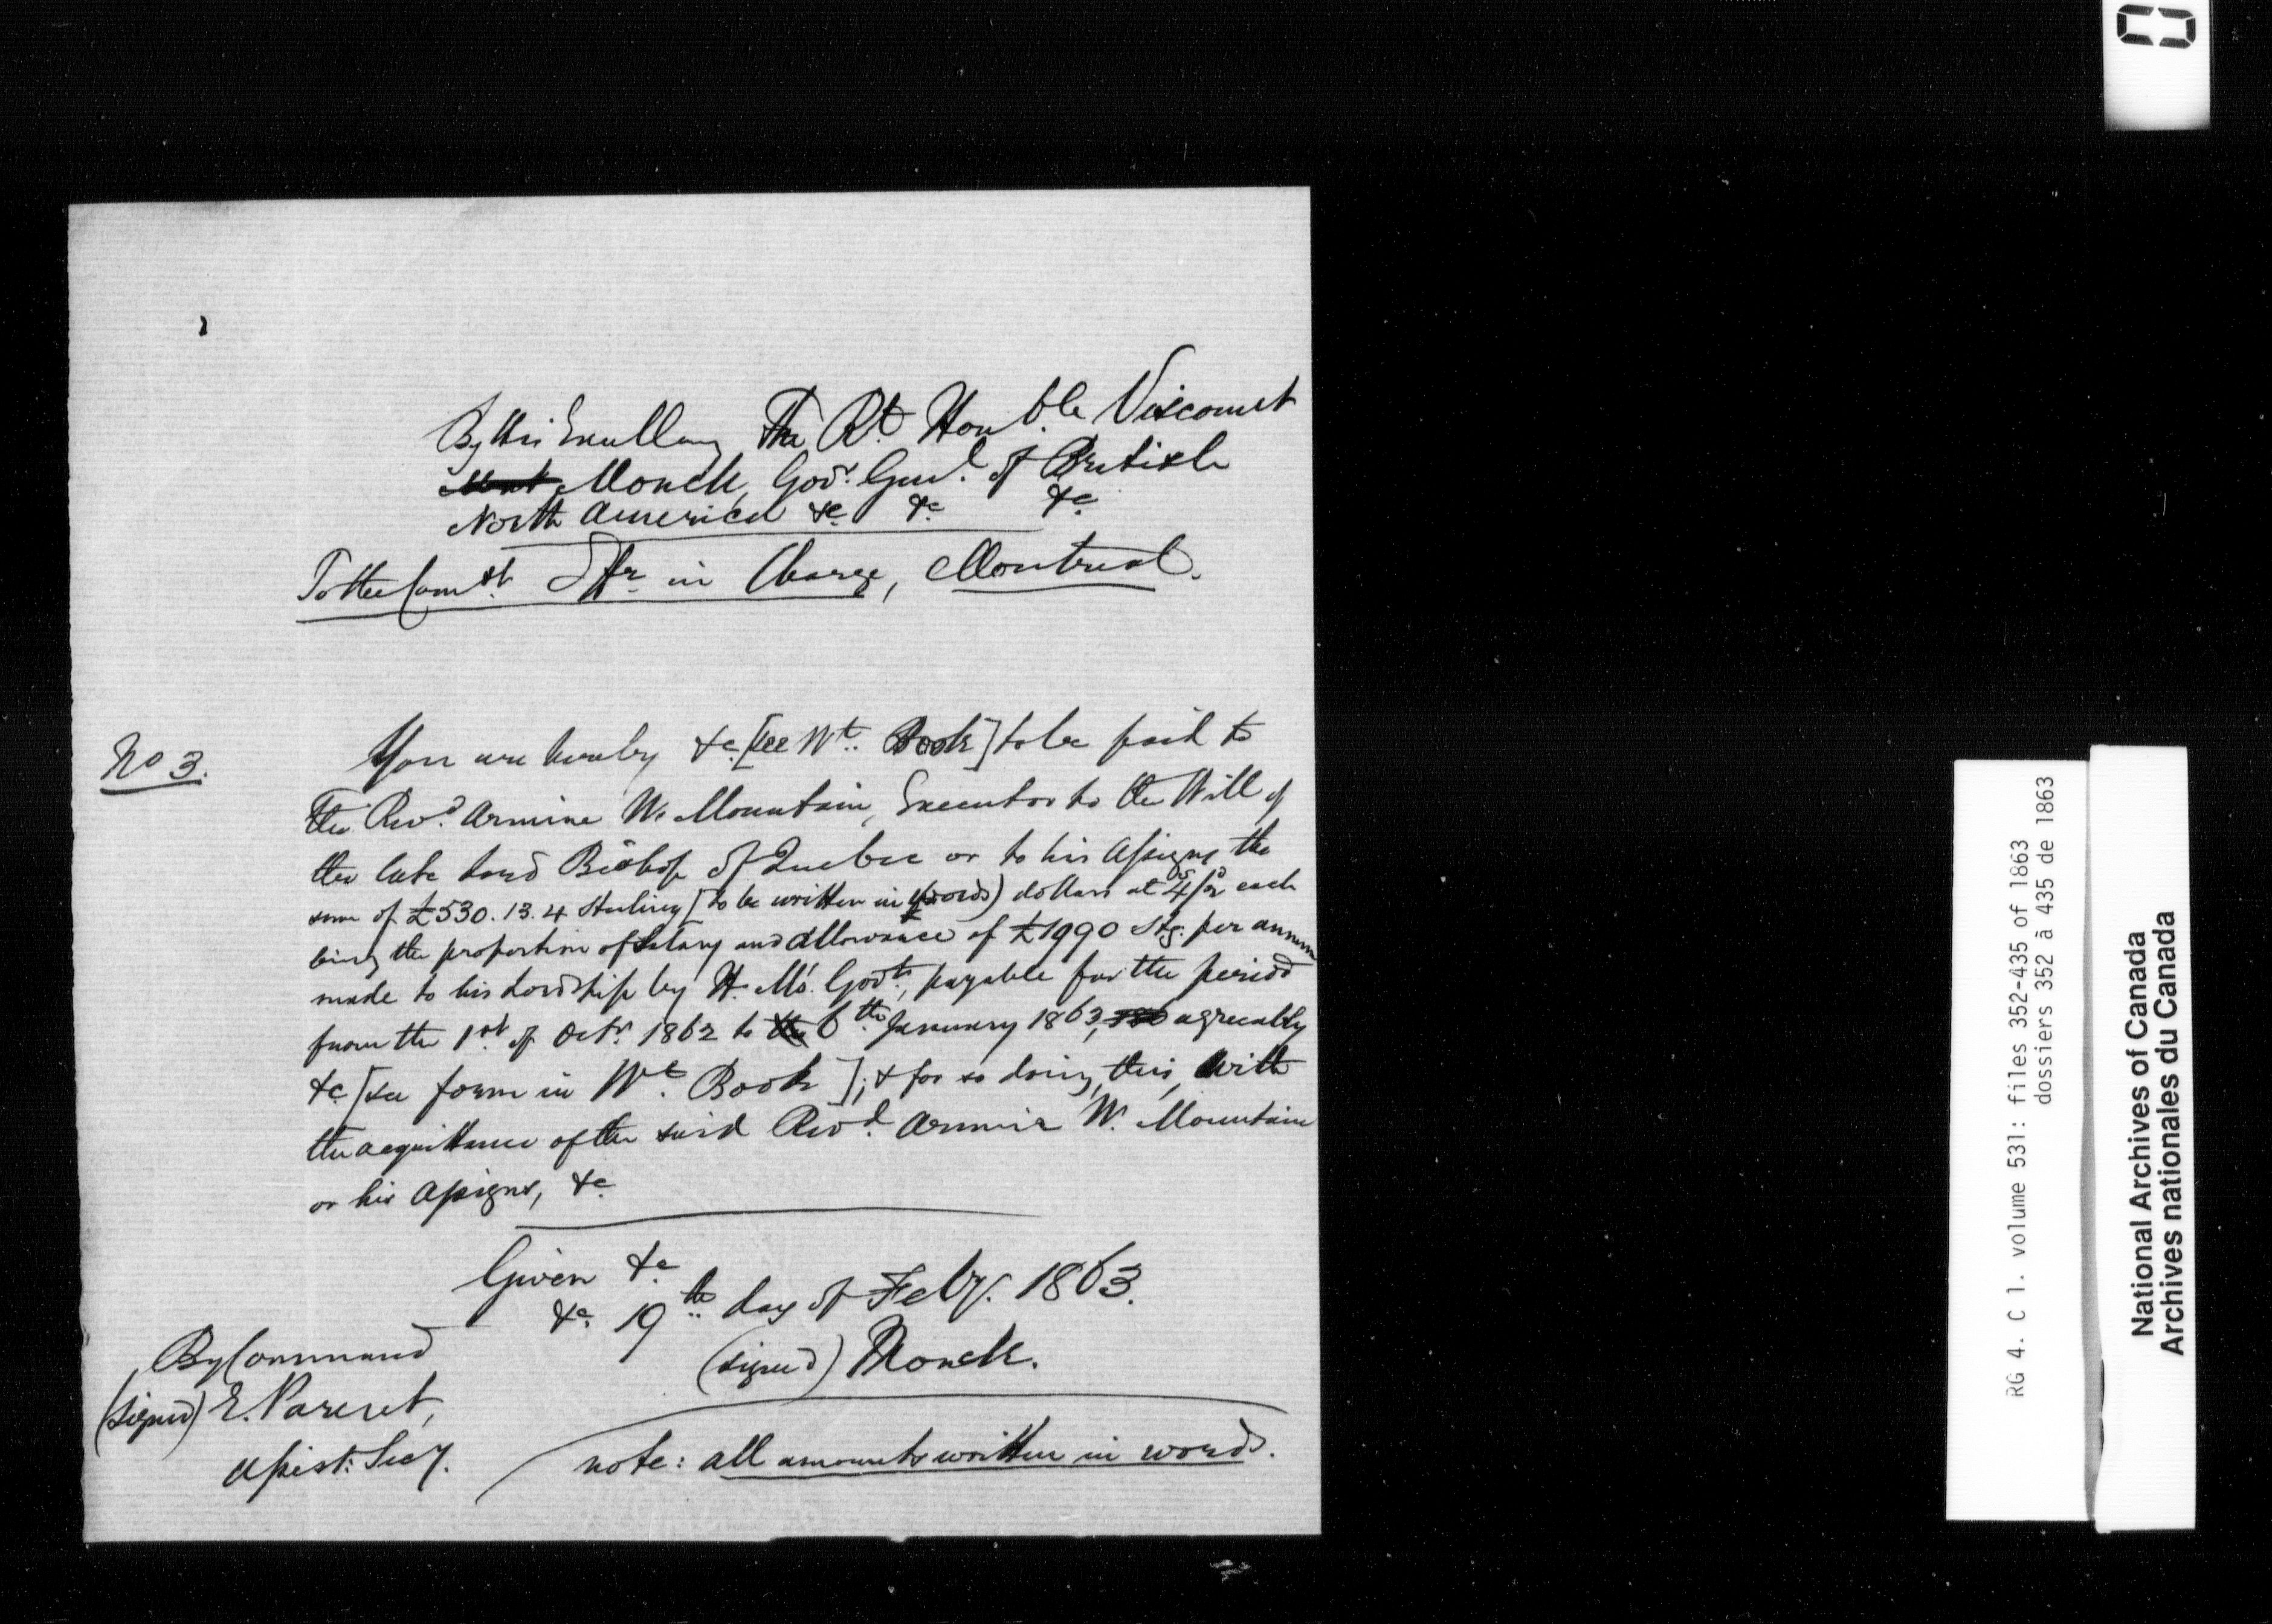 By His Excellency The Rt. Honble. Viscount
Monck, Govr. Genl. of British
North America &c. &c. &c.
To the Comst. Offr. in Charge, Montreal.
No 3.
You are hereby &c. [see Wt. Book] to be paid to
The Revd. Armine W. Mountain, Executor to the Will of
the late Lord Bishop of Quebec or to his Assigns the
sum of £530.13.4 Sterling [to be written in words) dollars at 4s/2d each
being the proportion of Salary and allowance of £1990 Stg. per annum
made to his Lordship by H. M's. Govt., payable for the period
from the 1st. of Octr. 1862 to 6th. January 1863, agreeably
&c [see form in Wt. Book]; & for so doing, this, with
the acquittance of the said Revd. Armine W. Mountain
or his Assigns, &c.
Given &c.
&c. 19th. day of Feby. 1863.
(signed) Monck.
By Command
(signed) E. Parent,
Assist: Secy.
note: all amounts written in words.
RG 4. C 1. volume 531: files 352-435 of 1863
dossiers 352 à 435 de 1863
National Archives of Canada
Archives nationales du Canada